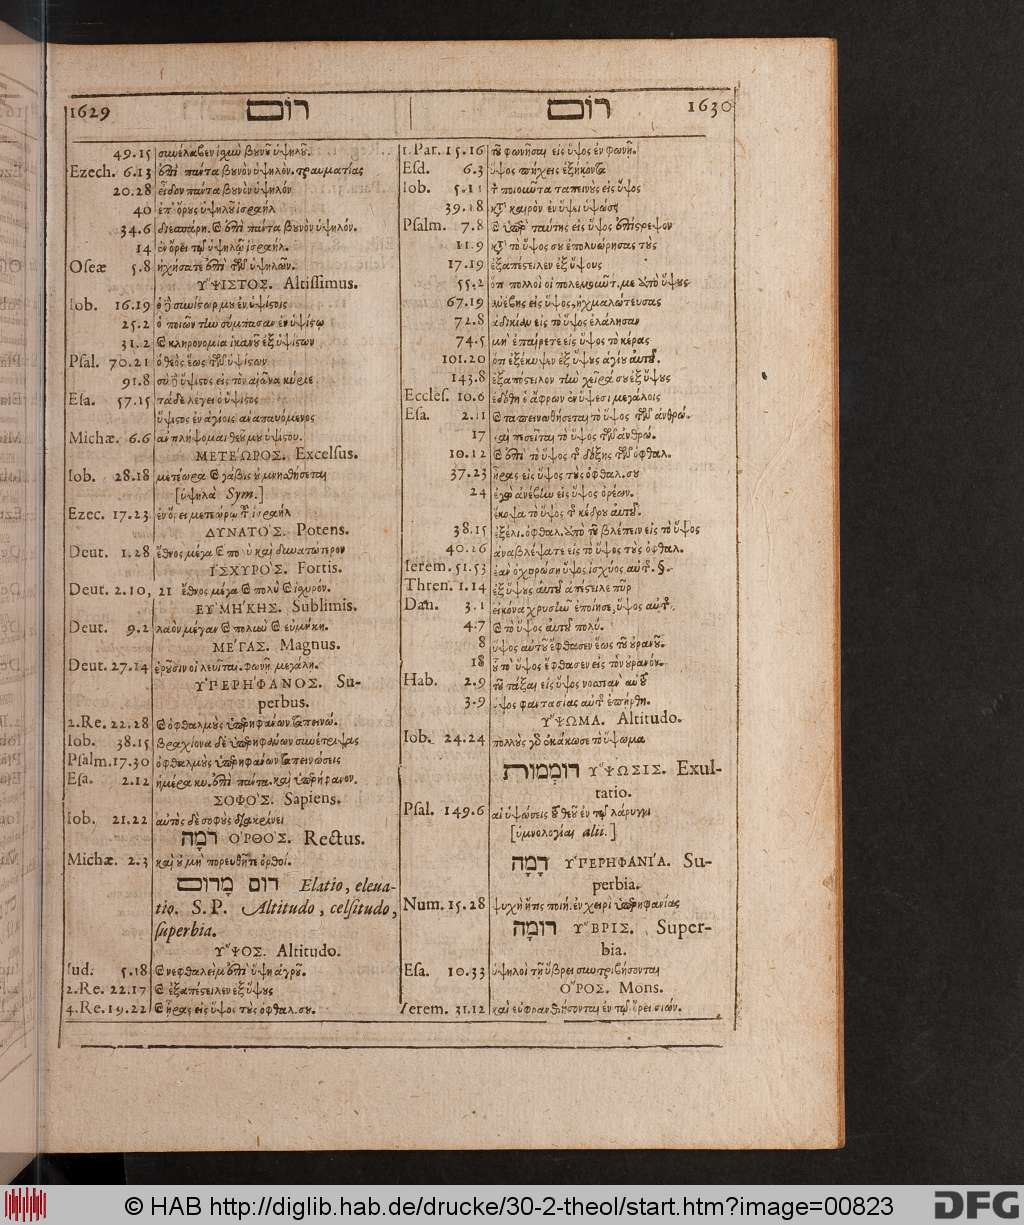 1629 רום
49.15 συνέλαβεν ἐμοὶ βουνοῦ ὑψηλοῦ.
Ezech. 6.13 ἐπὶ πάντα βουνὸν ὑψηλὸν. τραυματίας
20.28 εἶδον πάντα βουνὸν ὑψηλόν
40 ἐπ' ὄρους ὑψηλοῦ ἰσραήλ
34.6 διεσπάρη. καὶ ἐπὶ πάντα βουνὸν ὑψηλόν.
14 ἐν ὄρει τῷ ὑψηλῷ ἰσραήλ.
Oseæ 5.8 ἠχήσατε ἐπὶ τῶν ὑψηλῶν.
ὝΨΙΣΤΟΣ. Altissimus.
Iob. 16.19 ὁ δὲ συνίστωρ μου ἐν ὑψίστοις
25.2 ὁ ποιῶν τὴν σύμπασαν ἐν ὑψίστῳ
31.2 καὶ κληρονομία ἱκανοῦ ἐξ ὑψίστων
Psal. 70.21 ὁ θεὸς ἕως τῶν ὑψίστων
91.8 σὺ δὲ ὕψιστος εἰς τὸν αἰῶνα κύριε
Esa. 57.15 τάδε λέγει ὁ ὕψιστος
ὕψιστος ἐν ἁγίοις ἀναπαυόμενος
Michæ. 6.6 ἀντιλήψομαι θεοῦ μου ὑψίστου.
ΜΕΤΕΩΡΟΣ. Excelsus.
Iob. 28.18 μετέωρα καὶ γάβις οὐ μνησθήσεται
[ὑψηλὰ Sym.]
Ezec. 17.23 ἐν ὄρει μετεώρῳ τοῦ ἰσραήλ
ΔΥΝΑΤΟΣ. Potens.
Deut. 1.28 ἔθνος μέγα καὶ πολὺ καὶ δυνατώτερον
ἸΣΧΥΡΟΣ. Fortis.
Deut. 2.10, 21 ἔθνος μέγα καὶ πολὺ καὶ ἰσχυρόν.
ΕΥΜΗΚΗΣ. Sublimis.
Deut. 9.2 λαὸν μέγαν καὶ πολιω καὶ εὐμήκη.
ΜΕΓΑΣ. Magnus.
Deut. 27.14 ἐροῦσιν οἱ λευῖται. φωνῇ μεγάλῃ.
ὙΠΕΡΗΦΑΝΟΣ. Su-
perbus.
2.Re. 22.28 καὶ ὀφθαλμοὺς ὑπερηφάνων ταπεινώ.
Iob. 38.15 βραχίονα δὲ ὑπερηφάνων συνέτριψας
Psalm. 17.30 ὀφθαλμοὺς ὑπερηφάνων ταπεινώσεις
Esa. 2.12 ἡμέρα κυ. ἐπὶ πάντα. καὶ ὑπερήφανον.
ΣΟΦΟΣ. Sapiens.
Iob. 21.22 αὐτὸς δὲ σοφοὺς διακρίνει
רמה ὈΡΘΟΣ. Rectus.
Michæ. 2.3 καὶ οὐ μὴ πορευθῆτε ὀρθοί.
רום מרום Elatio, eleua-
tio. S.P. Altitudo, celsitudo,
superbia.
ὝΨΟΣ. Altitudo.
Iud. 5.18 καὶ νεφθαλεὶμ ἐπὶ ὕψη ἀγροῦ.
2.Re. 22.17 καὶ ἐξαπέστειλεν ἐξ ὕψους
4.Re. 19.22 καὶ ἦρας εἰς ὕψος τοὺς ὀφθαλ. σου.
רום 1630
1.Par. 15.16 τοῦ φωνῆσαι εἰς ὕψος ἐν φωνῇ.
Esd. 6.3 ὕψος πήχεις ἑξήκοντα
Iob. 5.11 τὸν ποιοῦντα ταπεινοὺς εἰς ὕψος
39.18 κατὰ καιρὸν ἐν ὕψει ὑψώσει
Psalm. 7.8 καὶ ὑπὲρ ταύτης εἰς ὕψος ἐπίστρεψον
11.9 κατὰ τὸ ὕψος σου ἐπολυώρησας τοὺς
17.19 ἐξαπέστειλεν ἐξ ὕψους
55.2 ὅτι πολλοὶ οἱ πολεμοῦντ. με ἀπὸ ὕψους
67.19 ἀνέβης εἰς ὕψος, ᾐχμαλώτευσας
72.8 ἀδικίαν εἰς τὸ ὕψος ἐλάλησαν
74.5 μὴ ἐπαίρετε εἰς ὕψος τὸ κέρας
101.20 ὅτι ἐξέκυψεν ἐξ ὕψους ἁγίου αὐτοῦ.
143.8 ἐξαπόστειλον τὴν χεῖρα σου ἐξ ὕψους
Eccles. 10.6 ἐδόθη ὁ ἄφρων ἐν ὕψεσι μεγάλοις
Esa. 2.11 καὶ ταπεινωθήσεται τὸ ὕψος τῶν ἀνθρώ.
17 καὶ πεσεῖται τὸ ὕψος τῶν ἀνθρώ.
10.12 καὶ ἐπὶ τὸ ὕψος τῆς δόξης τῶν ὀφθαλ.
37.23 ἦρας εἰς ὕψος τοὺς ὀφθαλ. σου
24 ἐγὼ ἀνέβην εἰς ὕψος ὀρέων.
ἔκοψα τὸ ὕψος τῆς κέδρου αὐτοῦ.
38.15 ἐξέλι. ὀφθαλ. ἀπὸ τοῦ βλέπειν εἰς τὸ ὕψος
40.26 ἀναβλέψατε εἰς τὸ ὕψος τοὺς ὀφθαλ.
Ierem. 51.53 ἐὰν ὀχυρώσῃ ὕψος ἰσχύος αὐτῆς. §.
Thren. 1.14 ἐξ ὕψους αὐτοῦ ἀπέστειλε πῦρ
Dan. 3.1 εἰκόνα χρυσῆν ἐποίησε, ὕψος αὐτῆς.
4.7 καὶ τὸ ὕψος αὐτοῦ πολύ.
8 ὕψος αὐτοῦ ἔφθασεν ἕως τοῦ οὐρανοῦ.
18 οὗ τὸ ὕψος ἔφθασεν εἰς τὸν οὐρανόν.
Hab. 2.9 τοῦ τάξαι εἰς ὕψος νοσσιὰν αὐτοῦ
3.9 ὕψος φαντασίας αὐτῆς ἐπήρθη.
ὝΨΩΜΑ. Altitudo.
Iob. 24.24 πολλοὺς γὰρ ἐκάκωσε τὸ ὕψωμα
רוממות ὝΨΩΣΙΣ. Exul-
tatio.
Psal. 149.6 αἱ ὑψώσεις τοῦ θεοῦ ἐν τῷ λάρυγγι
[ὑμνολογίαι alii.]
רמה ὙΠΕΡΗΦΑΝΙΑ. Su-
perbia.
Num. 15.28 ψυχὴ ἥτις ποιή. ἐν χειρὶ ὑπερηφανίας
רומה ὝΒΡΙΣ. Super-
bia.
Esa. 10.33 ὑψηλοὶ τῇ ὕβρει συντριβήσονται
ὌΡΟΣ. Mons.
Ierem. 31.12 καὶ εὐφρανθήσονται ἐν τῷ ὄρει σιών.
© HAB http://diglib.hab.de/drucke/30-2-theol/start.htm?image=00823
DFG